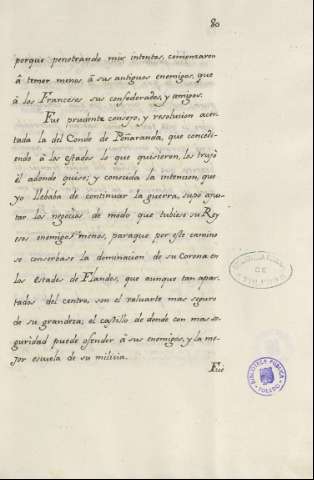 80
porque penetrando mis intentos, comenzaron
â temer menos, â sus antiguos enemigos, que
â los Franceses sus confederados, y amigos.
Fue prudente consejo, y resolucion acer-
tada la del Conde de Peñaranda, que concedi-
endo â los estados lo que quisieron, los trujo
él adonde quiso; y conocida la intencion, que
yo llebaba de continuar la guerra, supo ajus-
tar los negocios de modo que tubiese su Rey
esos enemigos menos, paraque por este camino
se conserbase la dominacion de su Corona en
los estados de Flandes, que aunque tan apar-
tados del centro, son el valuarte mas seguro
de su grandeza; el castillo de donde con mas se-
guridad puede ofender â sus enemigos, y la me-
jor escuela de su milicia.
Fué
DE
BIBLIOTECA PUBLICA
TOLEDO